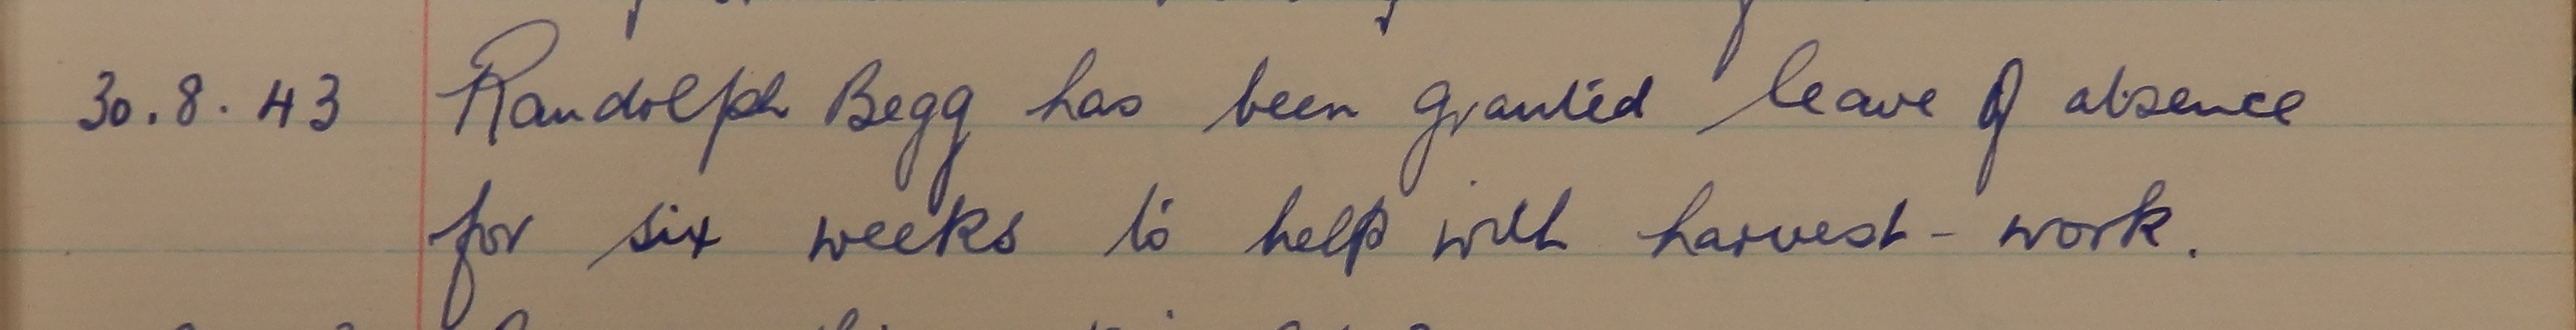 30.8.43 Randolph Begg has been granted leave of absence
for six weeks to help with harvest-work.